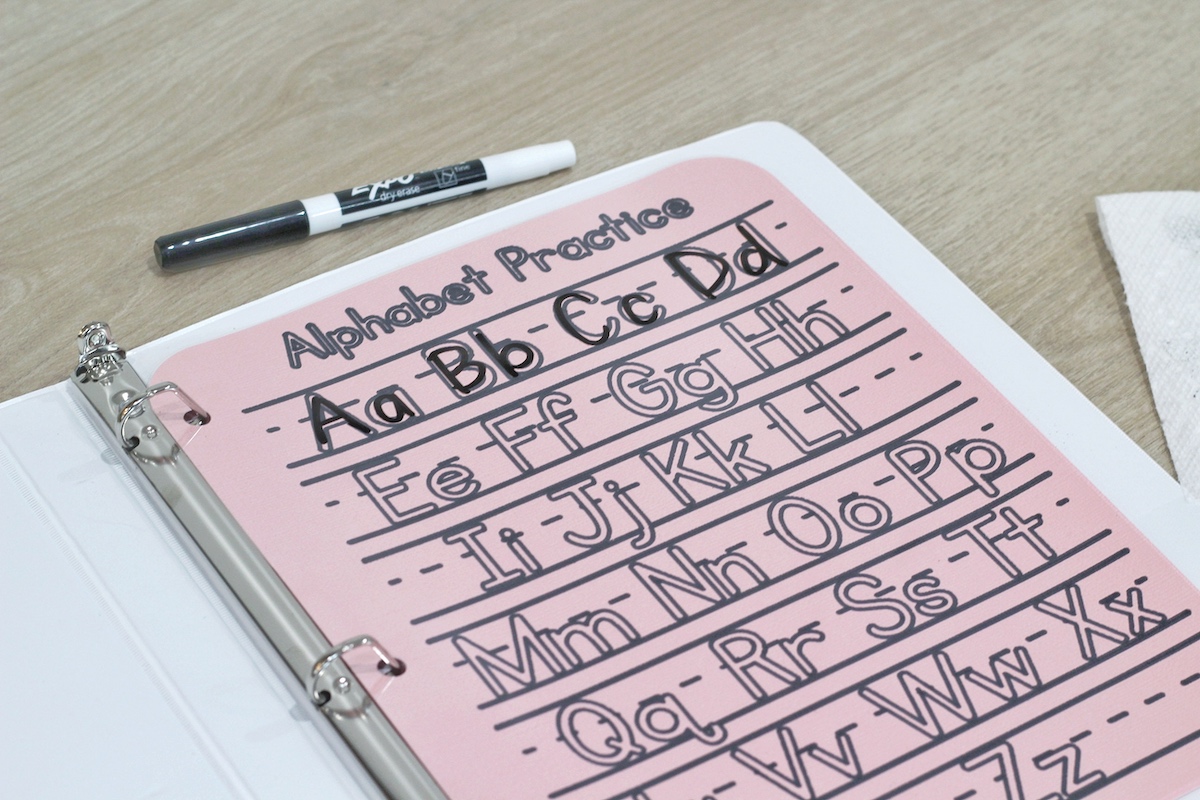 EXPO
dry-erase
Fine
Alphabet Practice
Aa Bb Cc Dd
Ee Ff Gg Hh
Ii Jj Kk Ll
Mm Nn Oo Pp
Qq Rr Ss Tt
Vv Ww Xx
Zz